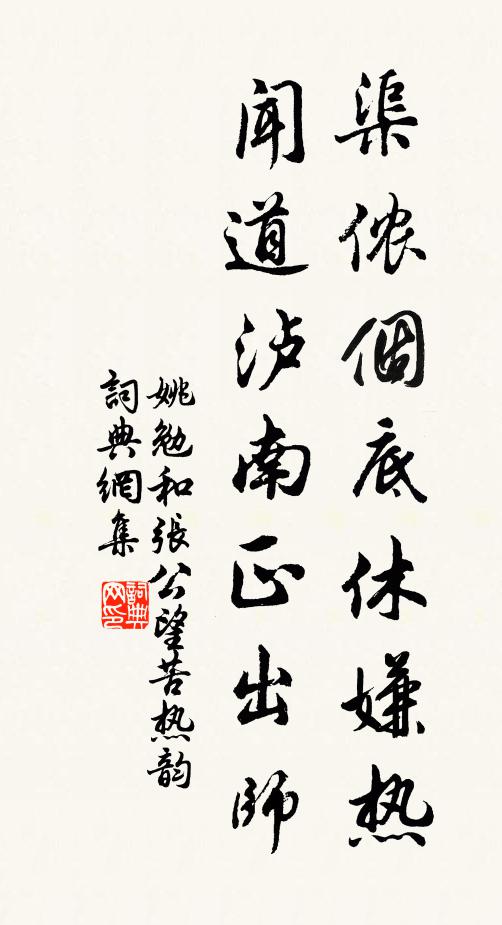 渠侬個底休嫌热
闻道泸南正出师
姚勉和張公望苦热韵
詞典網集
詞典网印